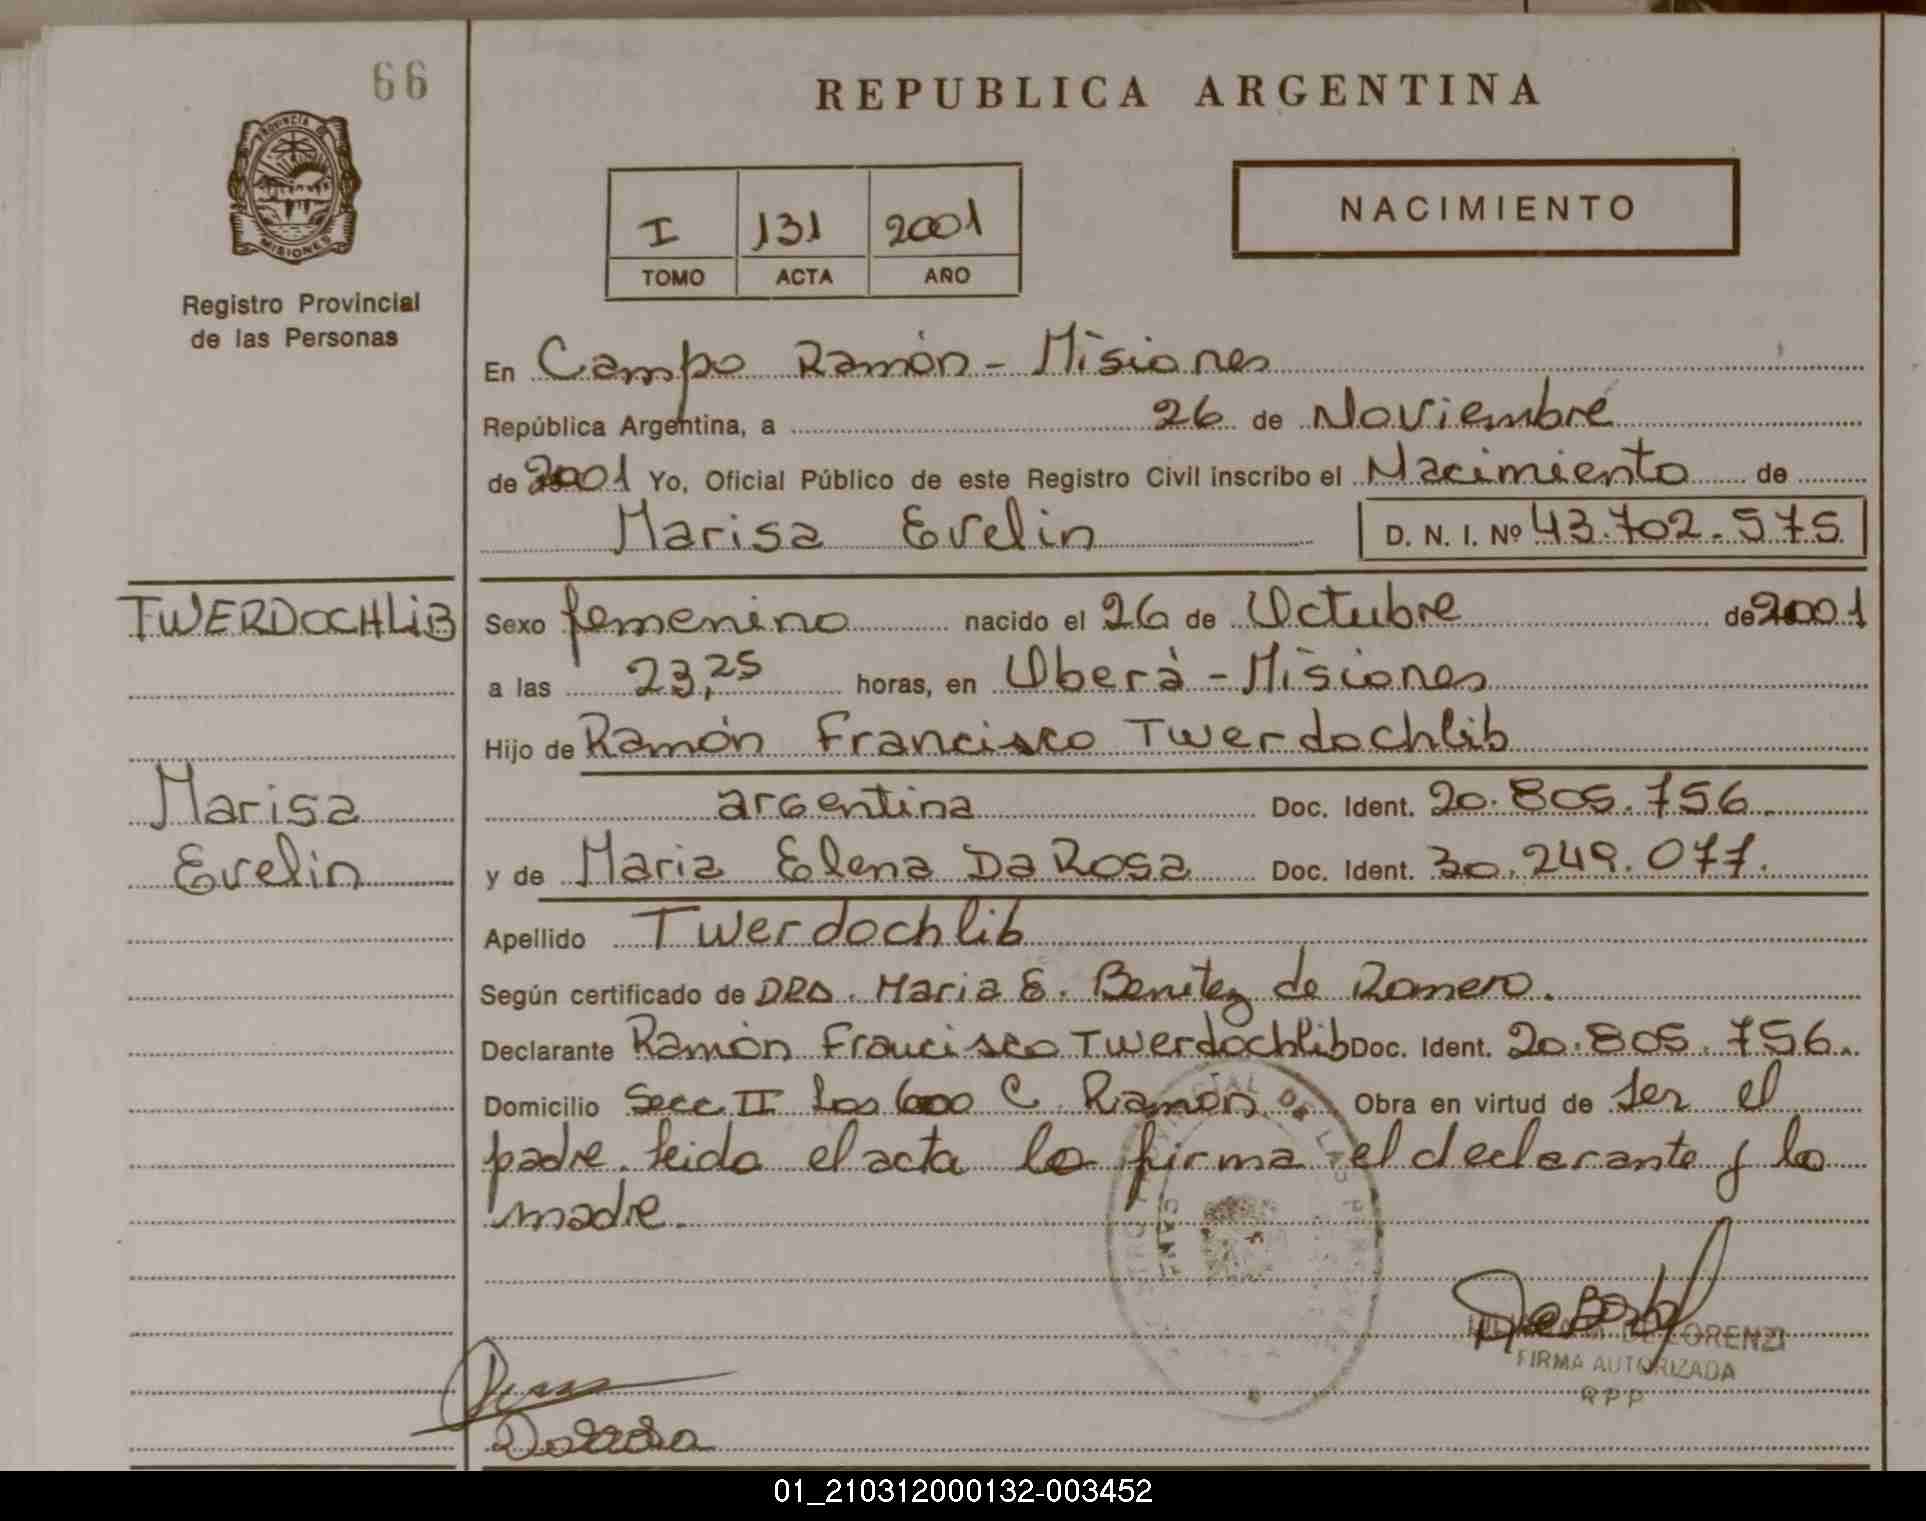 66
REPUBLICA ARGENTINA
PROVINCIA DE
MISIONES
Registro Provincial
de las Personas
I 131 2001
TOMO ACTA AÑO
NACIMIENTO
En Campo Ramón - Misiones
República Argentina, a 26 de Noviembre
de 2001 Yo, Oficial Público de este Registro Civil inscribo el Nacimiento de
Marisa Evelin D. N. I. Nº 43.702.575
TWERDOCHLIB
Marisa
Evelin
Sexo femenino nacido el 26 de Octubre de 2001
a las 23,25 horas, en Oberá - Misiones
Hijo de Ramón Francisco Twerdochlib
argentina Doc. Ident. 20.805.756
y de Maria Elena Da Rosa Doc. Ident. 30.249.077.
Apellido Twerdochlib
Según certificado de DRA. Maria E. Benitez de Romero.
Declarante Ramón Francisco Twerdochlib Doc. Ident. 20.805.756.
Domicilio Secc II Los 600 C. Ramón Obra en virtud de ser el
padre. leida el acta la firma el declarante y la
madre.
DE LORENZI
FIRMA AUTORIZADA
R P P
01_210312000132-003452